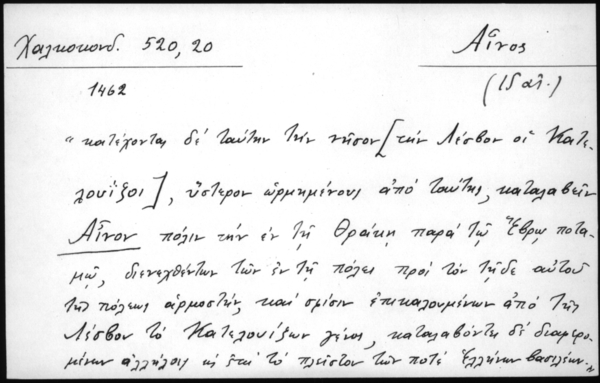 Χαλκοκονδ. 520, 20
Αἶνος
1462
(Ἰδ αἰ.)
"κατέχοντας δέ ταύτην τήν νῆσον [τήν Λέσβον οἱ Κατε-
λουΐξοι], ὕστερον ὡρμημένους ἀπό ταύτης, καταλαβεῖν
Αἶνον πόλιν τήν ἐν τῇ Θράκῃ παρά τῷ Ἕβρῳ ποτα-
μῷ, διενεχθέντων τῶν ἐν τῇ πόλει πρός τόν τῇδε αὐτοῦ
τῆς πόλεως ἁρμοστήν, καί σφίσιν ἐπικαλουμένων ἀπό τῆς
Λέσβου τό Κατελουΐξων γένος, καταλαβόντες δέ διαφερο-
μένων ἀλλήλοις ὡς ἐπί τό πλεῖστον τῶν ποτέ Ἑλλήνων βασιλέων."